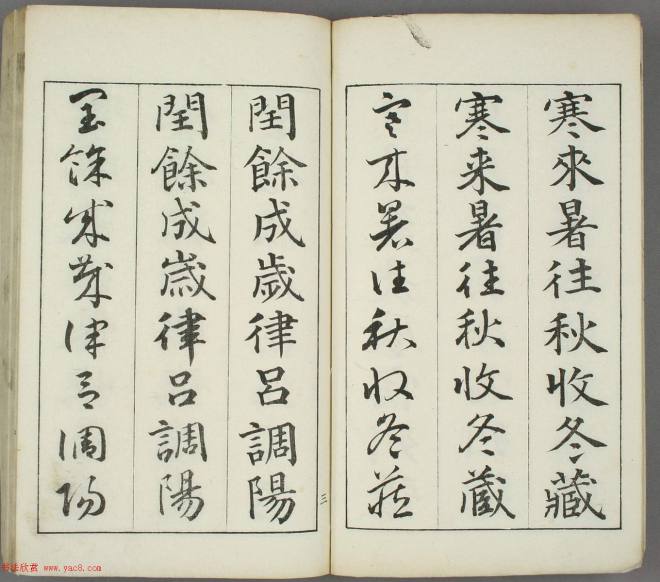 寒來暑往秋收冬藏
寒来暑往秋收冬蔵
寒来暑往秋收冬蔵
三
閏餘成歲律呂調陽
閏餘成嵗律呂調陽
閏餘成歲律呂調陽
书法欣赏 www.yac8.com